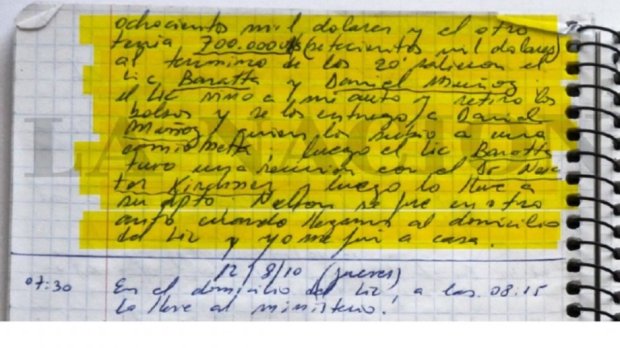 ochocientos mil dolares y el otro
tenia 700.000 (setecientos mil dolares)
al termino de los 20' salieron el
Lic Baratta y Daniel Muñoz.
el Lic vino a mi auto y retiro los
bolsos y se los entrego a Daniel
Muñoz, quien los subio a una
camioneta, luego el Lic Baratta
tuvo una reunion con el Dr Nes-
tor Kirchner y luego lo lleve a
su dpto. Nelson se fue en otro
auto cuando llegamos al domicilio
del Lic y yo me fui a casa.
12/8/10 (jueves)
07:30 En el domicilio del Lic, a las 08:15
lo lleve al ministerio.
LA NACION